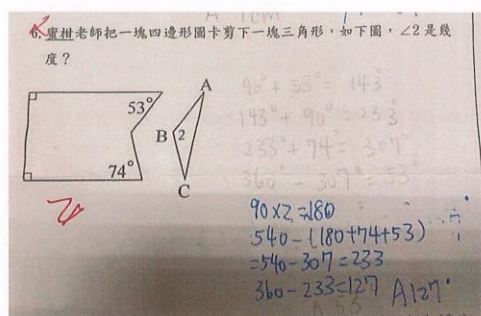 6.蜜柑老師把一塊四邊形圖卡剪下一塊三角形，如下圖，∠2是幾
度？
A
53°
B 2
74°
C
90° + 53° = 143°
143° + 90° = 233°
233° + 74° = 307°
360° - 307° = 53°
90×2=180
540-(180+74+53)
=540-307=233
360-233=127 A127°